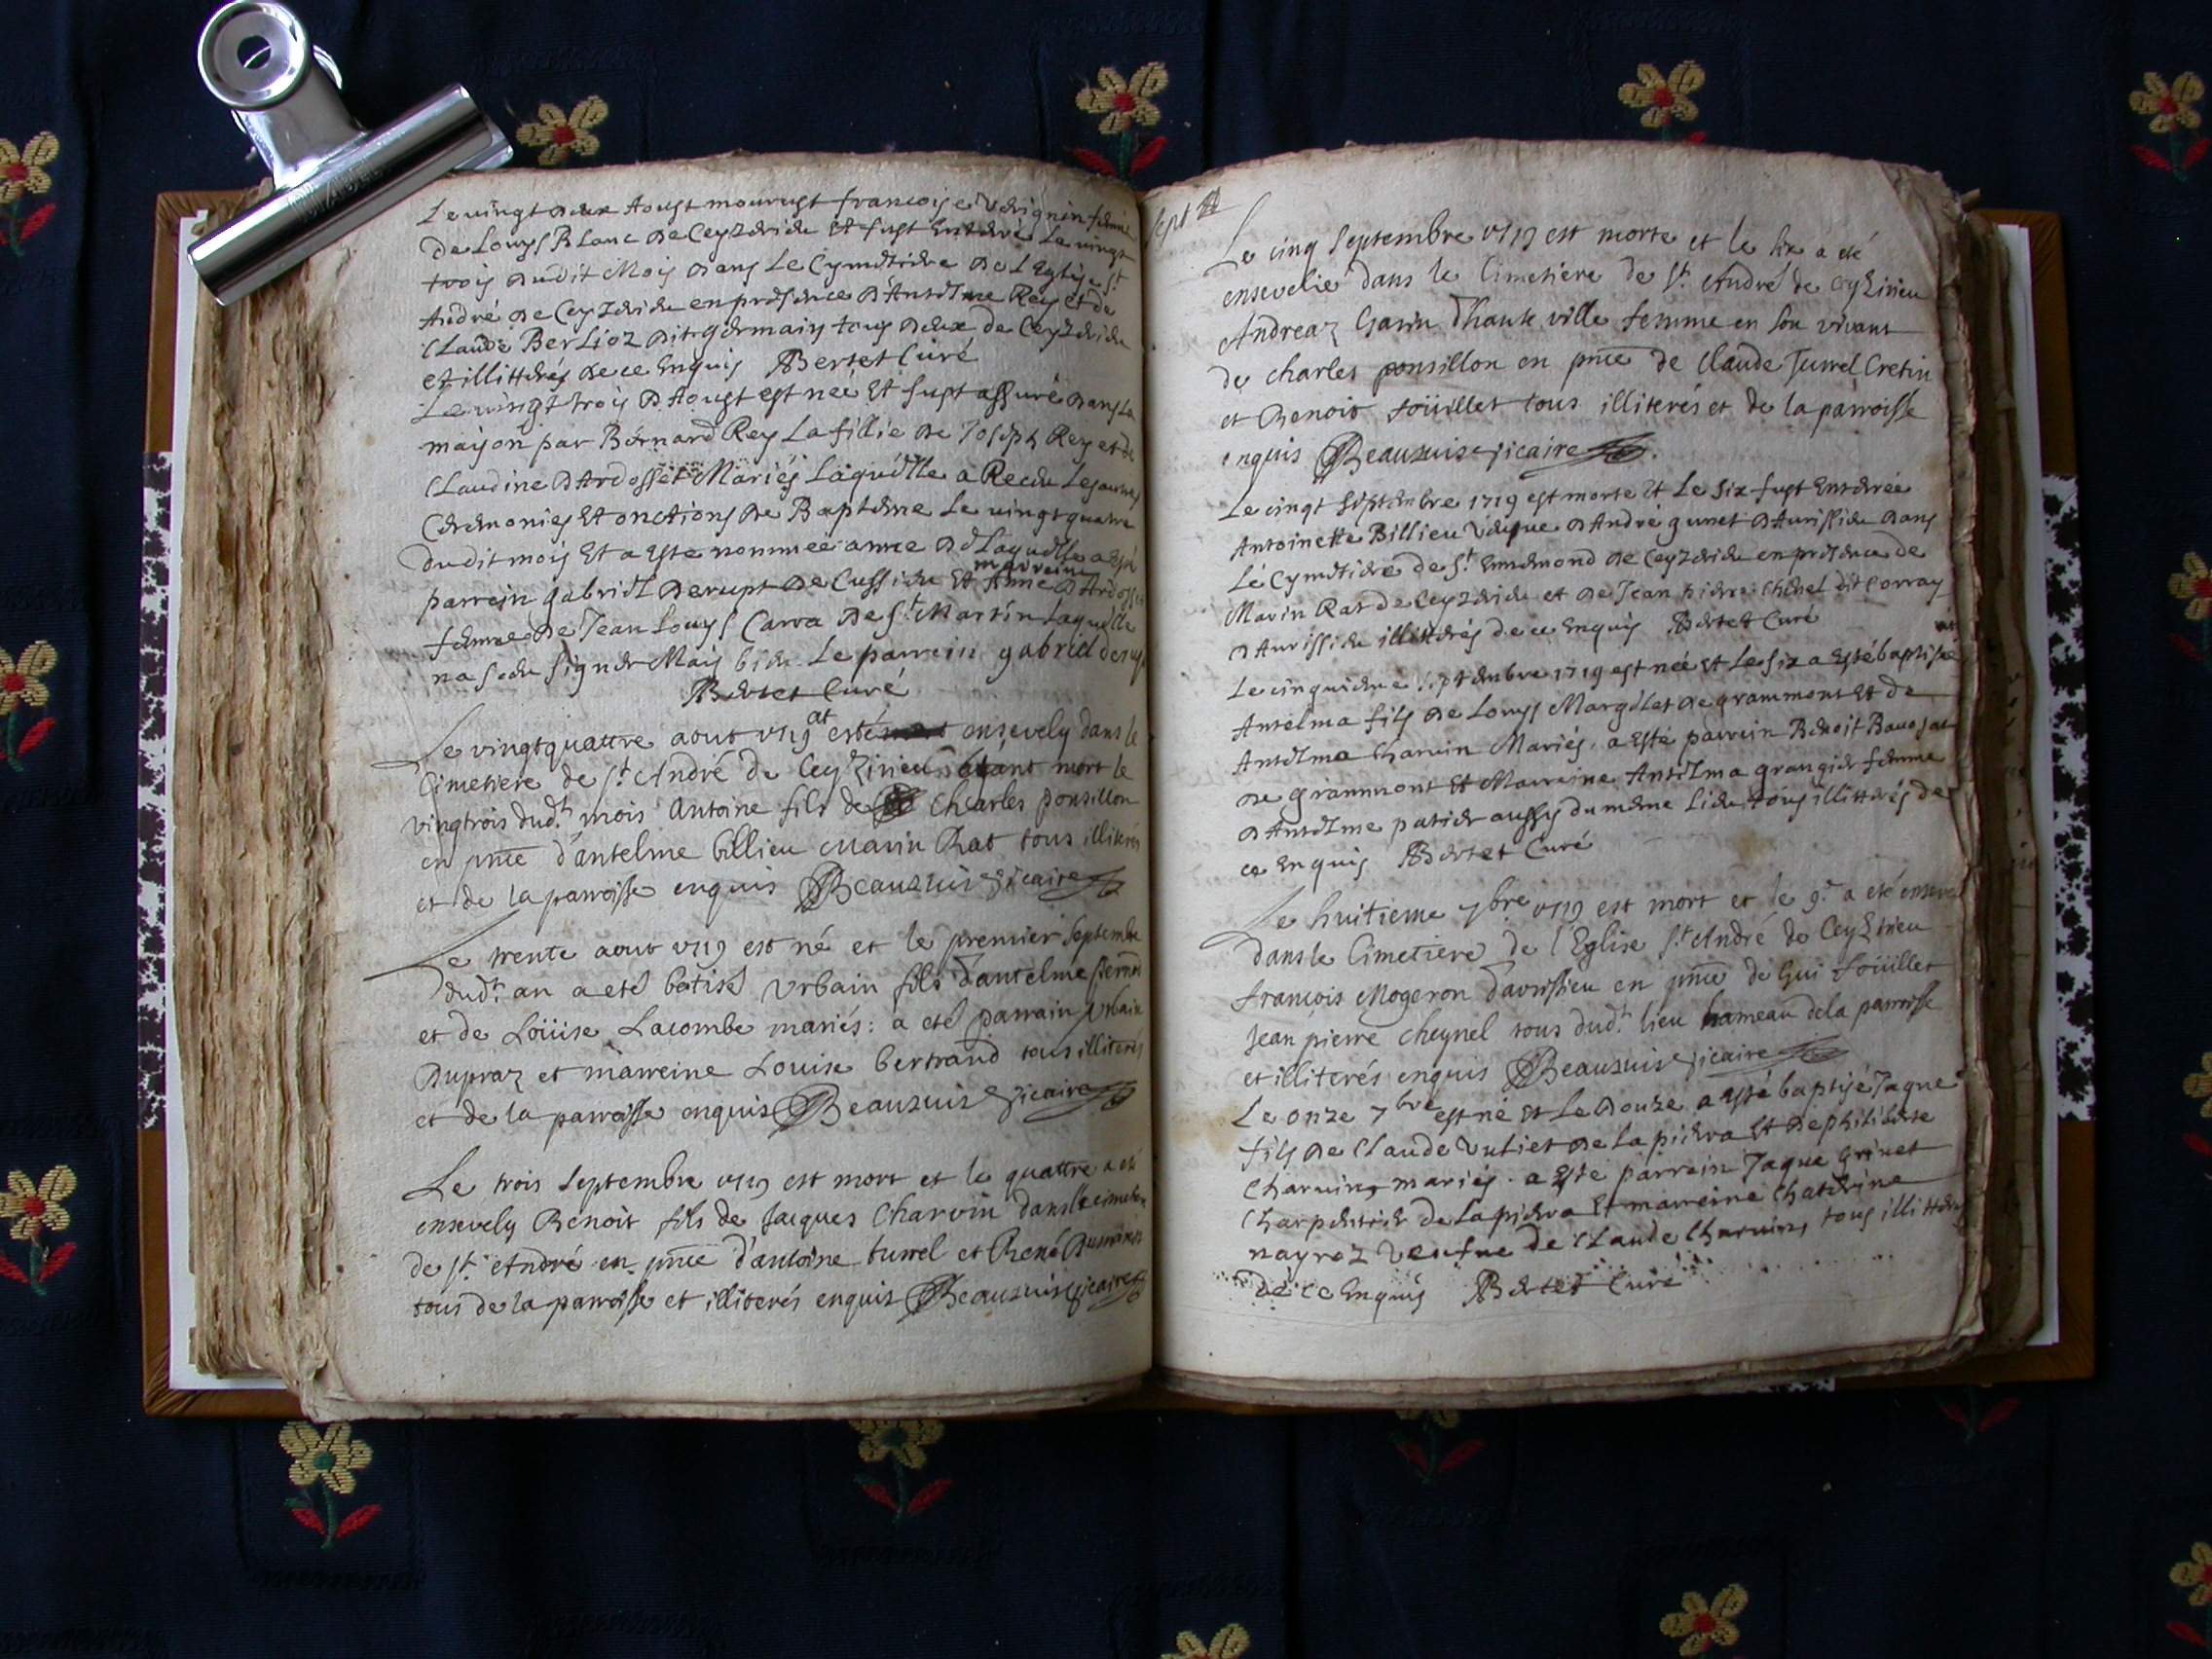 Le vingt deux Aoust mourust francoise
de Louys Blanc de Ceyzerieu et fust Enterre Le vingt
trois dudit Mois dans Le Cymetiere de L Eglise St
André de Ceyzerieu en presence d'Antelme Rey et de
Claude Berlioz dit germain tous deux de Ceyzerieu
et illitterés de ce Enquis Bertet Curé
Le vingt trois d'Aoust est neé Et fust assuré dans La
maison par Bernard Rey La fillie de Joseph Rey et de
Claudine D'Ardosset Mariés Laquelle a Receu Les
Ceremonies Et onctions de Bapteme Le vingt quatre
du dit mois Et a Esté nommeé anne de Laquelle a esté
parrein gabriel derupt de Cussieu Et marreine Anne D'Ardosset
femme de Jean Louys Carra de St Martin Laquelle
na seeu signer Mais bien Le parrein gabriel derupt
Bertet Curé
Le vingtquattre aout 1719 at esté ensevely dans le
Cimetiere de St André de Ceyzirieu étant mort le
vingtrois dudt mois Antoine fils de Charles ponsillon
en pnce d'antelme billieu Marin Rat tous illiterés
et de la parroisse enquis Beausuis vicaire
Le trente aout 1719 est né et le premier Septembre
dudt an a eté batisé Urbain fils d'antelme
et de Loüise Lacombe mariés: a eté parrain Urbain
Dupraz et marreine Louise bertrand tous illiterés
et de la parroisse enquis Beausuis vicaire
Le trois Septembre 1719 est mort et le quattre a eté
ensevely Benoit fils de Jacques Charvin dans le cimetiere
de St André en pnce d'antoine turrel et René
tous de la parroisse et illiterés enquis Beausuis vicaire
Sept
Le cinq Septembre 1719 est morte et le six a eté
ensevelie dans le Cimetiere de St André de ceyzirieu
Andreaz Gavin d'haute ville femme en son vivant
de charles ponsillon en pnce de Claude Turrel Cretin
et Benoit foüillet tous illiterés et de la parroisse
enquis Beausuis vicaire
Le cinqt Septembre 1719 est morte Et Le Six fust Enterrée
Antoinette Billieu Veufve d'André gunet d'Aurissieu dans
Le Cymetiere de St Ennemond de Ceyzerieu en presence de
Marin Rat de Ceyzerieu et de Jean pierre Chenel dit Corray
d'Aurissieu illitterés de ce Enquis Bertet Curé
Le cinquieme Septembre 1719 est neé et Le Six a Esté baptisée
Antelma fils de Louys Margelet de grammont Et de
Antelma Charvin Mariés. a Esté parrein Benoit
de grammont Et Marreine Antelma grangier femme
d'Antelme patier aussy du meme Lieu tous illitterés de
ce Enquis Bertet Curé
Le huitieme 7bre 1719 est mort et le 9e a eté enseveli
dans le Cimetiere de l'Eglise St André de Ceyzirieu
francois Mogeron d'avrissieu en pnce de Gui foüillet
Jean pierre cheynel tous dudt lieu hameau de la parroisse
et illiterés enquis Beausuis vicaire
Le onze 7bre est né Et Le Douze a Esté baptisé Jaque
fils de Claude Vuliet de La pierra Et de philiberte
Charvin mariés. a Esté parrein Jaque grinet
Charpentier de La pierra Et marreine Chaterine
nayroz veufue de Claude Charvin, tous illitterés
de ce Enquis Bertet Curé